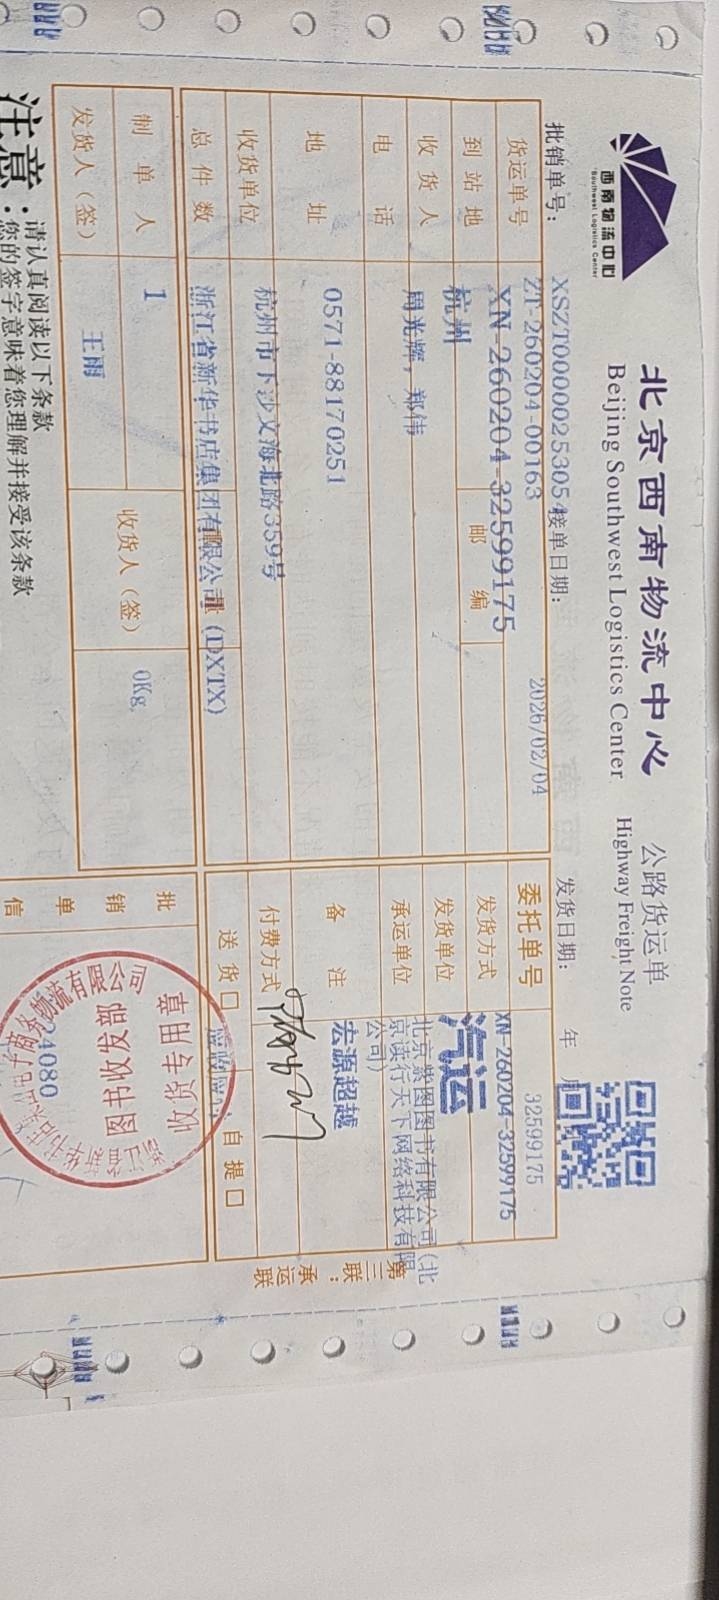 西南物流中心
Southwest Logistics Center
北京西南物流中心
Beijing Southwest Logistics Center
公路货运单
Highway Freight Note
批销单号：
XSZT0000025305
接单日期：
2026/02/04
发货日期：
年
月
货运单号
ZT-260204-00163
XN-260204-32599175
委托单号
32599175
XN-260204-32599175
到站地
杭州
邮编
发货方式
汽运
收货人
周光辉，郑伟
发货单位
北京紫图图书有限公司（北京读行天下网络科技有限公司）
电话
0571-88170251
承运单位
地址
杭州市下沙文海北路359号
备注
宏源超越
收货单位
浙江省新华书店集团有限公司
(DXTX)
付费方式
总件数
1
0Kg
送货口
自提口
制单人
王雨
收货人（签）
发货人（签）
批销单信
24080
图书收发部
收货专用章
第三联：承运联
注意：
请认真阅读以下条款
您的签字意味着您理解并接受该条款